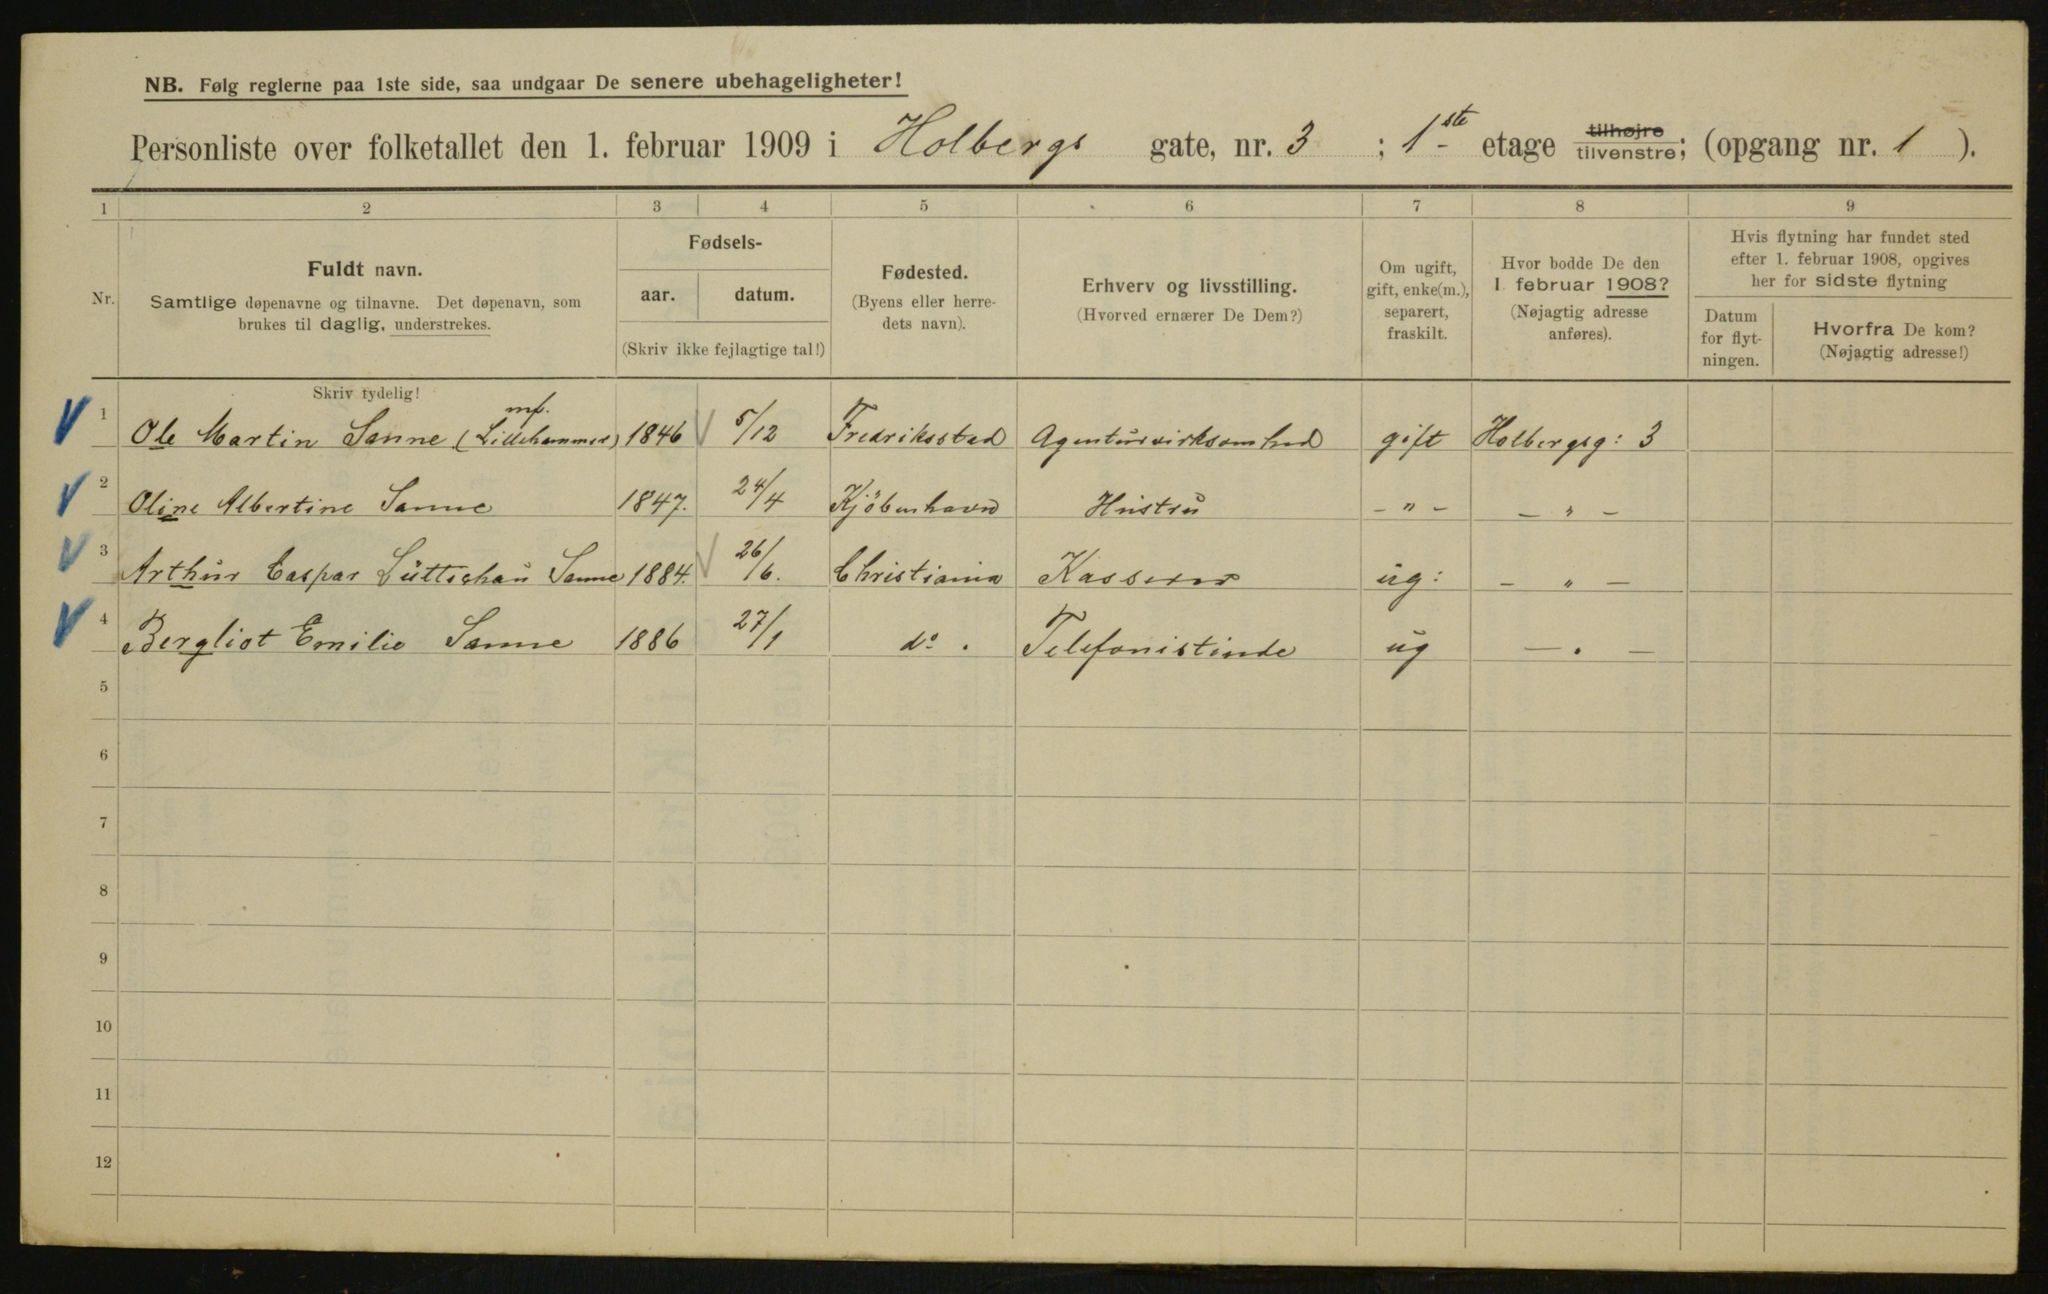 NB. Følg reglerne paa 1ste side, saa undgaar De senere ubehageligheter!
Personliste over folketallet den 1. februar 1909 i Holbergs gate, nr. 3 ; 1ste etage tilhøjre tilvenstre; (opgang nr. 1 ).
1 2 3 4 5 6 7 8 9
Nr.
Fuldt navn.
Samtlige døpenavne og tilnavne. Det døpenavn, som
brukes til daglig, understrekes.
Fødsels-
aar. datum.
(Skriv ikke fejlagtige tal!)
Fødested.
(Byens eller herre-
dets navn).
Erhverv og livsstilling.
(Hvorved ernærer De Dem?)
Om ugift,
gift, enke(m.),
separert,
fraskilt.
Hvor bodde De den
1. februar 1908?
(Nøjagtig adresse
anføres).
Hvis flytning har fundet sted
efter 1. februar 1908, opgives
her for sidste flytning
Datum
for flyt-
ningen.
Hvorfra De kom?
(Nøjagtig adresse!)
Skriv tydelig!
mf.
1 Ole Martin Sanne (Lillehammer) 1846 5/12 Fredriksstad Agenturvirksomhed gift Holbergsg: 3
2 Oline Albertine Sanne 1847. 24/4 Kjöbenhavn Hustru – " – – " –
3 Arthur Caspar Lüttichau Sanne 1884. 26/6. Christiania Kasserer ug: – " –
4 Bergliot Emilie Sanne 1886 27/1 do . Telefonistinde ug – " –
5
6
7
8
9
10
11
12